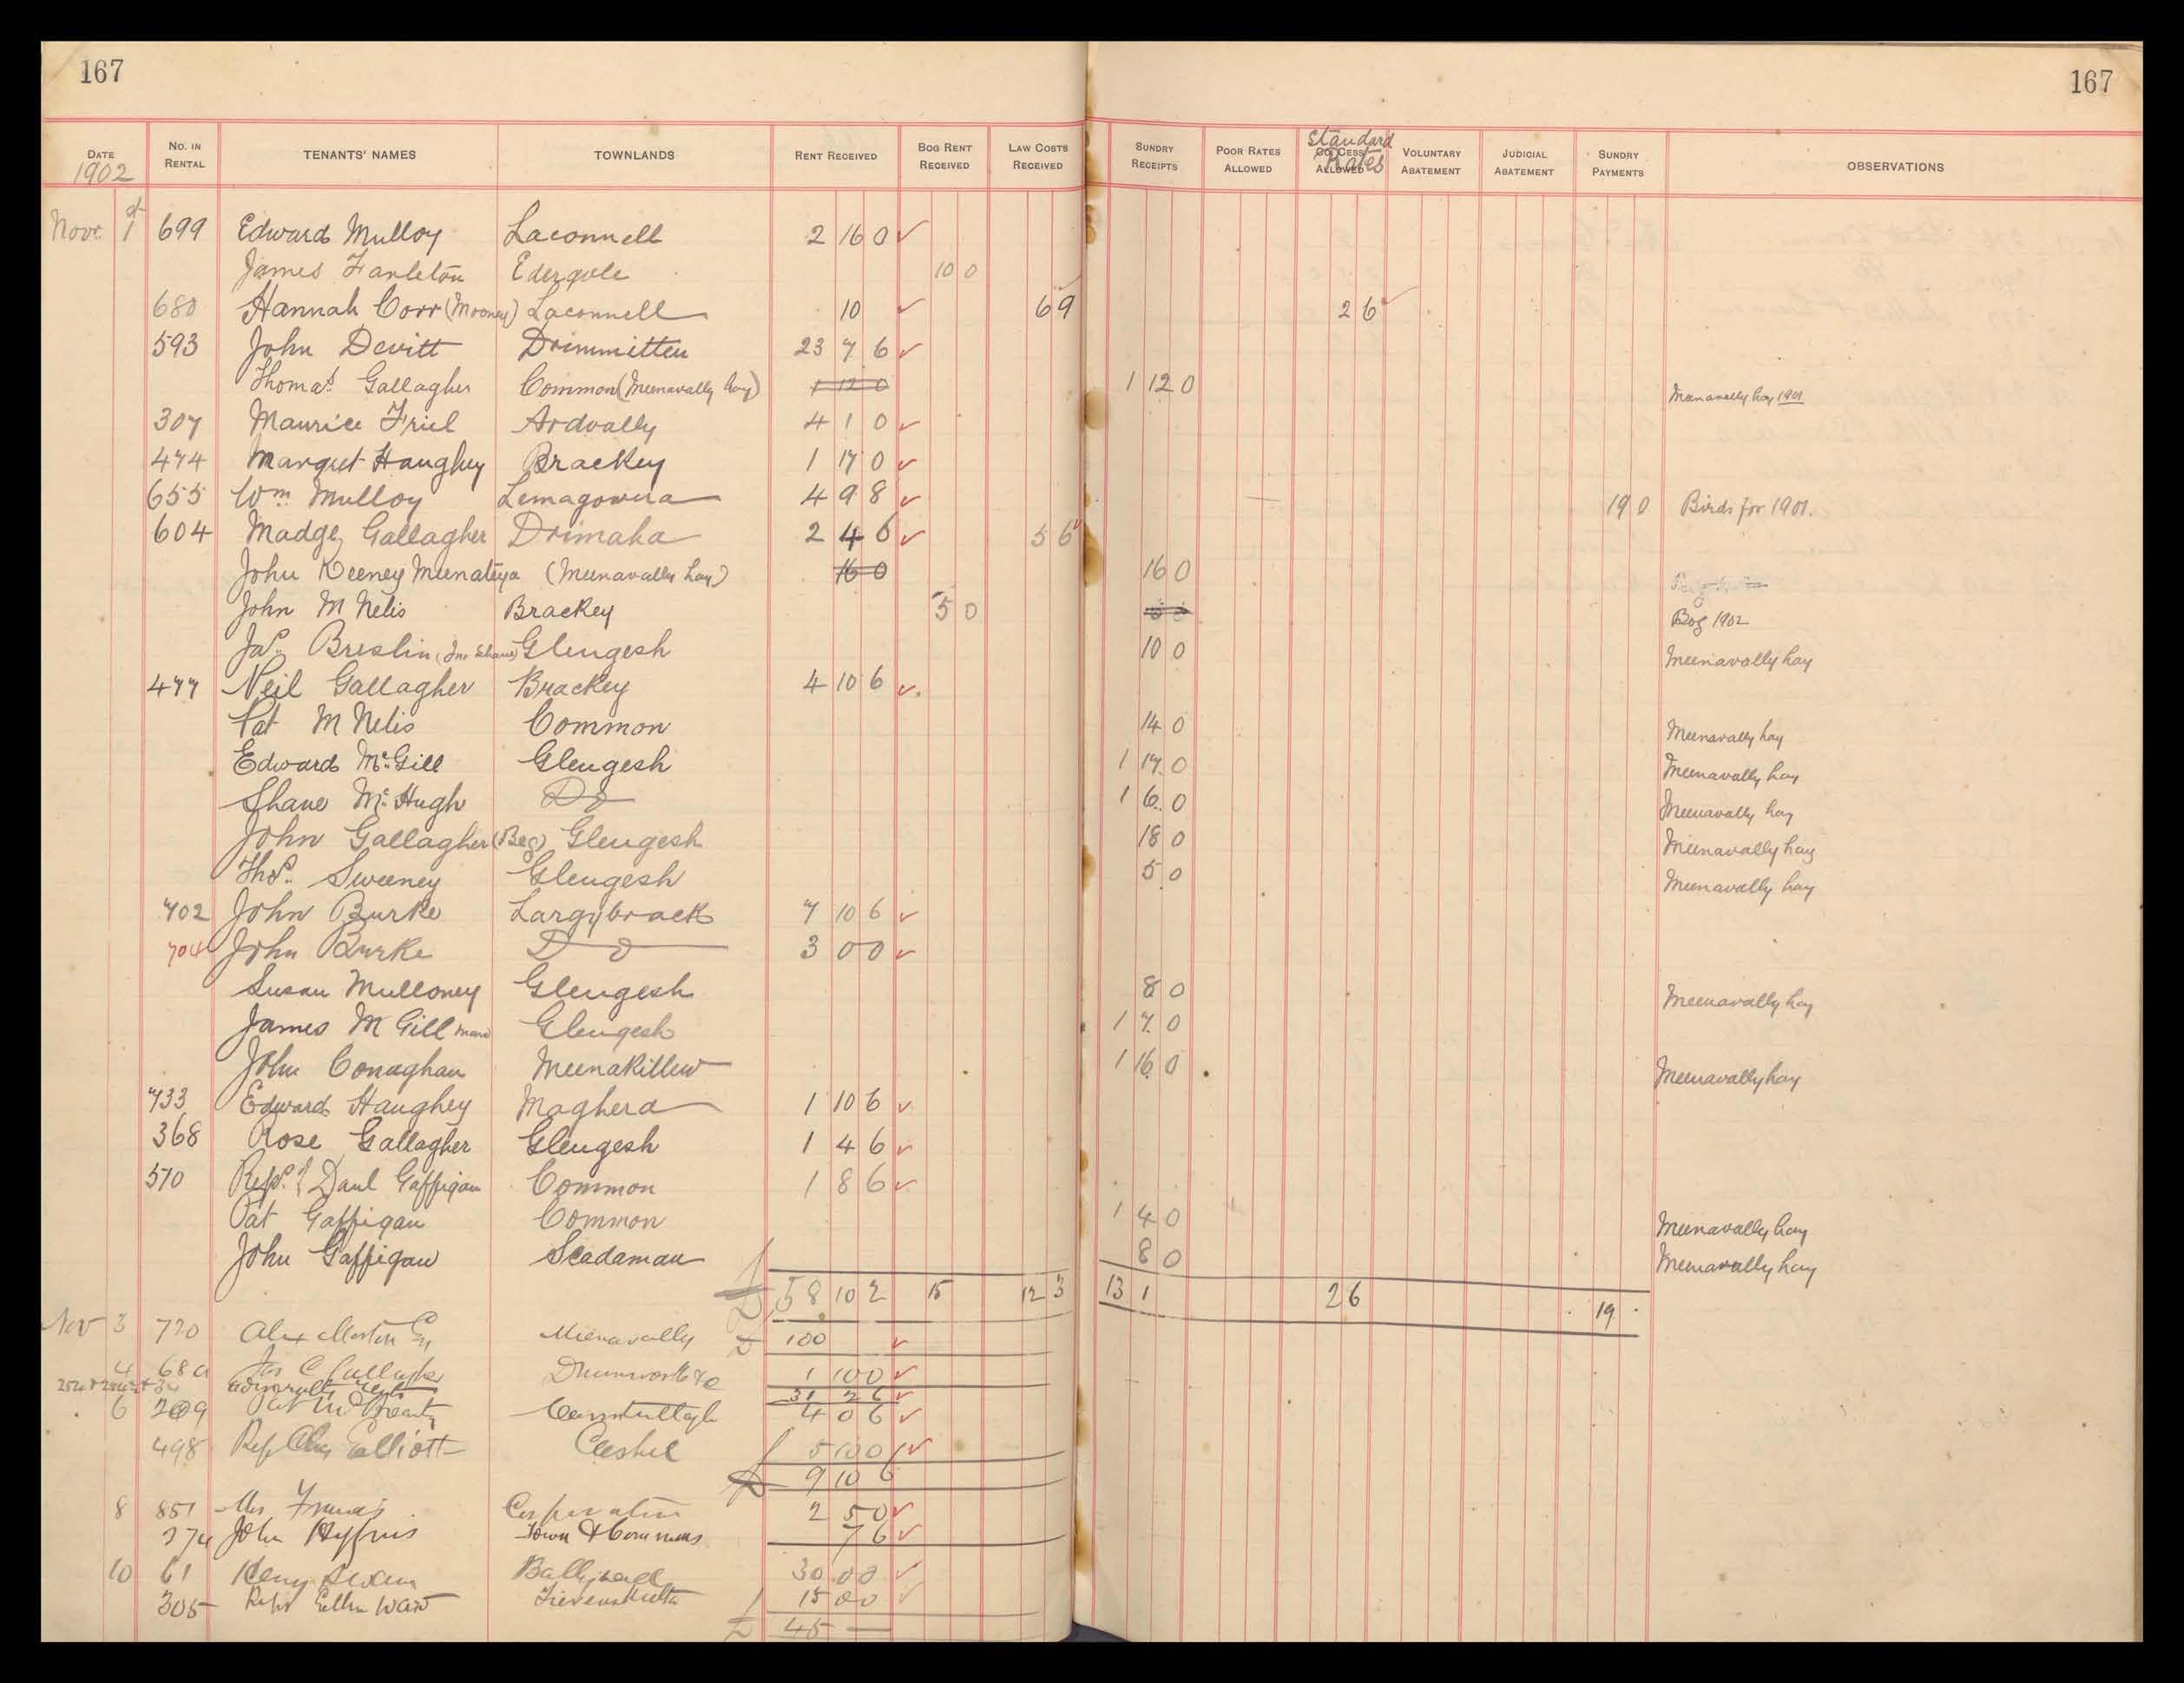 167
167
DATE No. IN RENTAL TENANTS' NAMES TOWNLANDS RENT RECEIVED BOG RENT RECEIVED LAW COSTS RECEIVED SUNDRY RECEIPTS POOR RATES ALLOWED CO. CESS ALLOWED Standard Rates VOLUNTARY ABATEMENT JUDICIAL ABATEMENT SUNDRY PAYMENTS OBSERVATIONS
1902
Novr 1st 699 Edward Mulloy Laconnell 2 16 0
James Tarleton Edergole 10 0
680 Hannah Corr (Mooney) Laconnell 10 6 9 2 6
593 John Devitt Drimmitten 23 7 6
Thomas Gallagher Common (Meenavally hay) 1 12 0 1 12 0 Meenavally hay 1901
307 Maurice Friel Ardvally 4 1 0
474 Margret Haughey Brackey 1 17 0
655 Wm Mulloy Lemagowra 4 9 8 19 0 Birds for 1901.
604 Madge Gallagher Drimaha 2 4 6 5 6
John Keeney Meenateya (Meenavally hay) 16 0 16 0
John M Nelis Brackey 5 0 Bog 1902
Jas. Breslin (Jno Shane) Glengesh 10 0 Meenavally hay
477 Neil Gallagher Brackey 4 10 6
Pat M Nelis Common 14 0 Meenavally hay
Edward Mc Gill Glengesh 1 17 0 Meenavally hay
Shane Mc Hugh Do 1 6 0 Meenavally hay
John Gallagher (Beg) Glengesh 18 0 Meenavally hay
Thos. Sweeney Glengesh 5 0 Meenavally hay
702 John Burke Largybrack 7 10 6
704 John Burke Do 3 0 0
Susan Mulloney Glengesh 8 0 Meenavally hay
James M Gill Glengesh 1 7 0
John Conaghan Meenakillew 1 16 0 Meenavally hay
733 Edward Haughey Maghera 1 10 6
368 Rose Gallagher Glengesh 1 4 6
570 Reps. of Danl Gaffigan Common 1 8 6
Pat Gaffigan Common 1 4 0 Meenavally hay
John Gaffigan Scadaman 8 0 Meenavally hay
58 10 2 15 12 3 13 1 2 6 19
Nov 3 770 Alex Morton Meenavally 100
4 Jas C Gallagher 1 10 0
31 2 6
6 Pat 4 0 6
498 Rep Elliott Cashel 5 10 0
9 10 6
8 851 Mrs Francis Corporation 2 5 0
274 John Town & Commons 7 6
10 61 30 0 0
305 Reps Ellen Ward 15 0 0
45